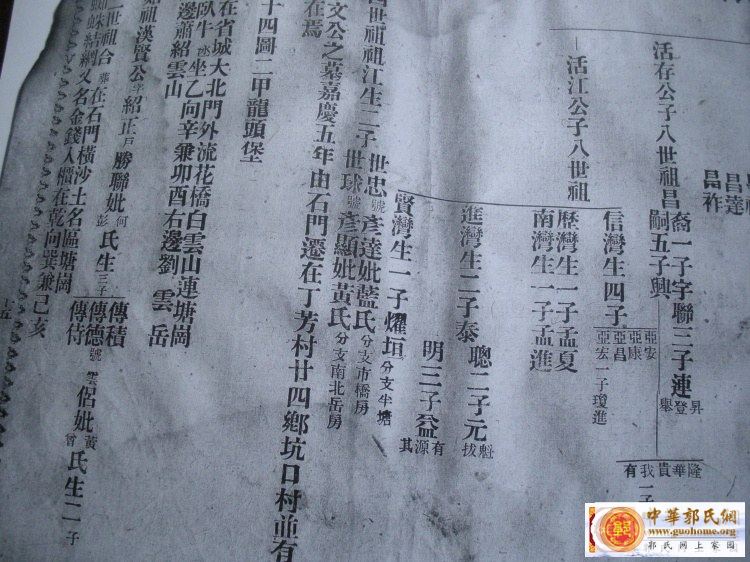 昌達
昌祚
活存公子八世祖昌
裔一子宇聯三子連 昇登舉
嗣五子興 隆華貴我有
一子
活江公子八世祖
信灣生四子 亞安 亞康 亞昌 亞宏一子瓊進
歷灣生一子孟夏
南灣生一子孟進
進灣生二子泰
聰二子元 魁拔
明三子益 有源其
賢灣生一子燿垣 分支半塘
四世祖祖江生二子
世忠號彥達妣藍氏 分支市橋房
世球號彥顯妣黃氏 分支南北岳房
文公之墓嘉慶五年由石門遷在丁芳村廿四鄉坑口村並有
在焉
十四圖二甲龍頭堡
在省城大北門外流花橋白雲山蓮塘崗
臥牛 坐乙向辛兼卯酉右邊劉雲岳
邊蕭紹雲山
始祖漢賢公 字紹正 戶勝聯妣何彭氏生三子
傳積
傳德號雲侶妣黃曾氏生二子
傳侍
二世祖合葬在石門橫沙土名區塘崗
蜘蛛結網又名金錢入櫃在乾向巽兼己亥
十五
中華郭氏網
www.guohome.org
郭氏網上家园